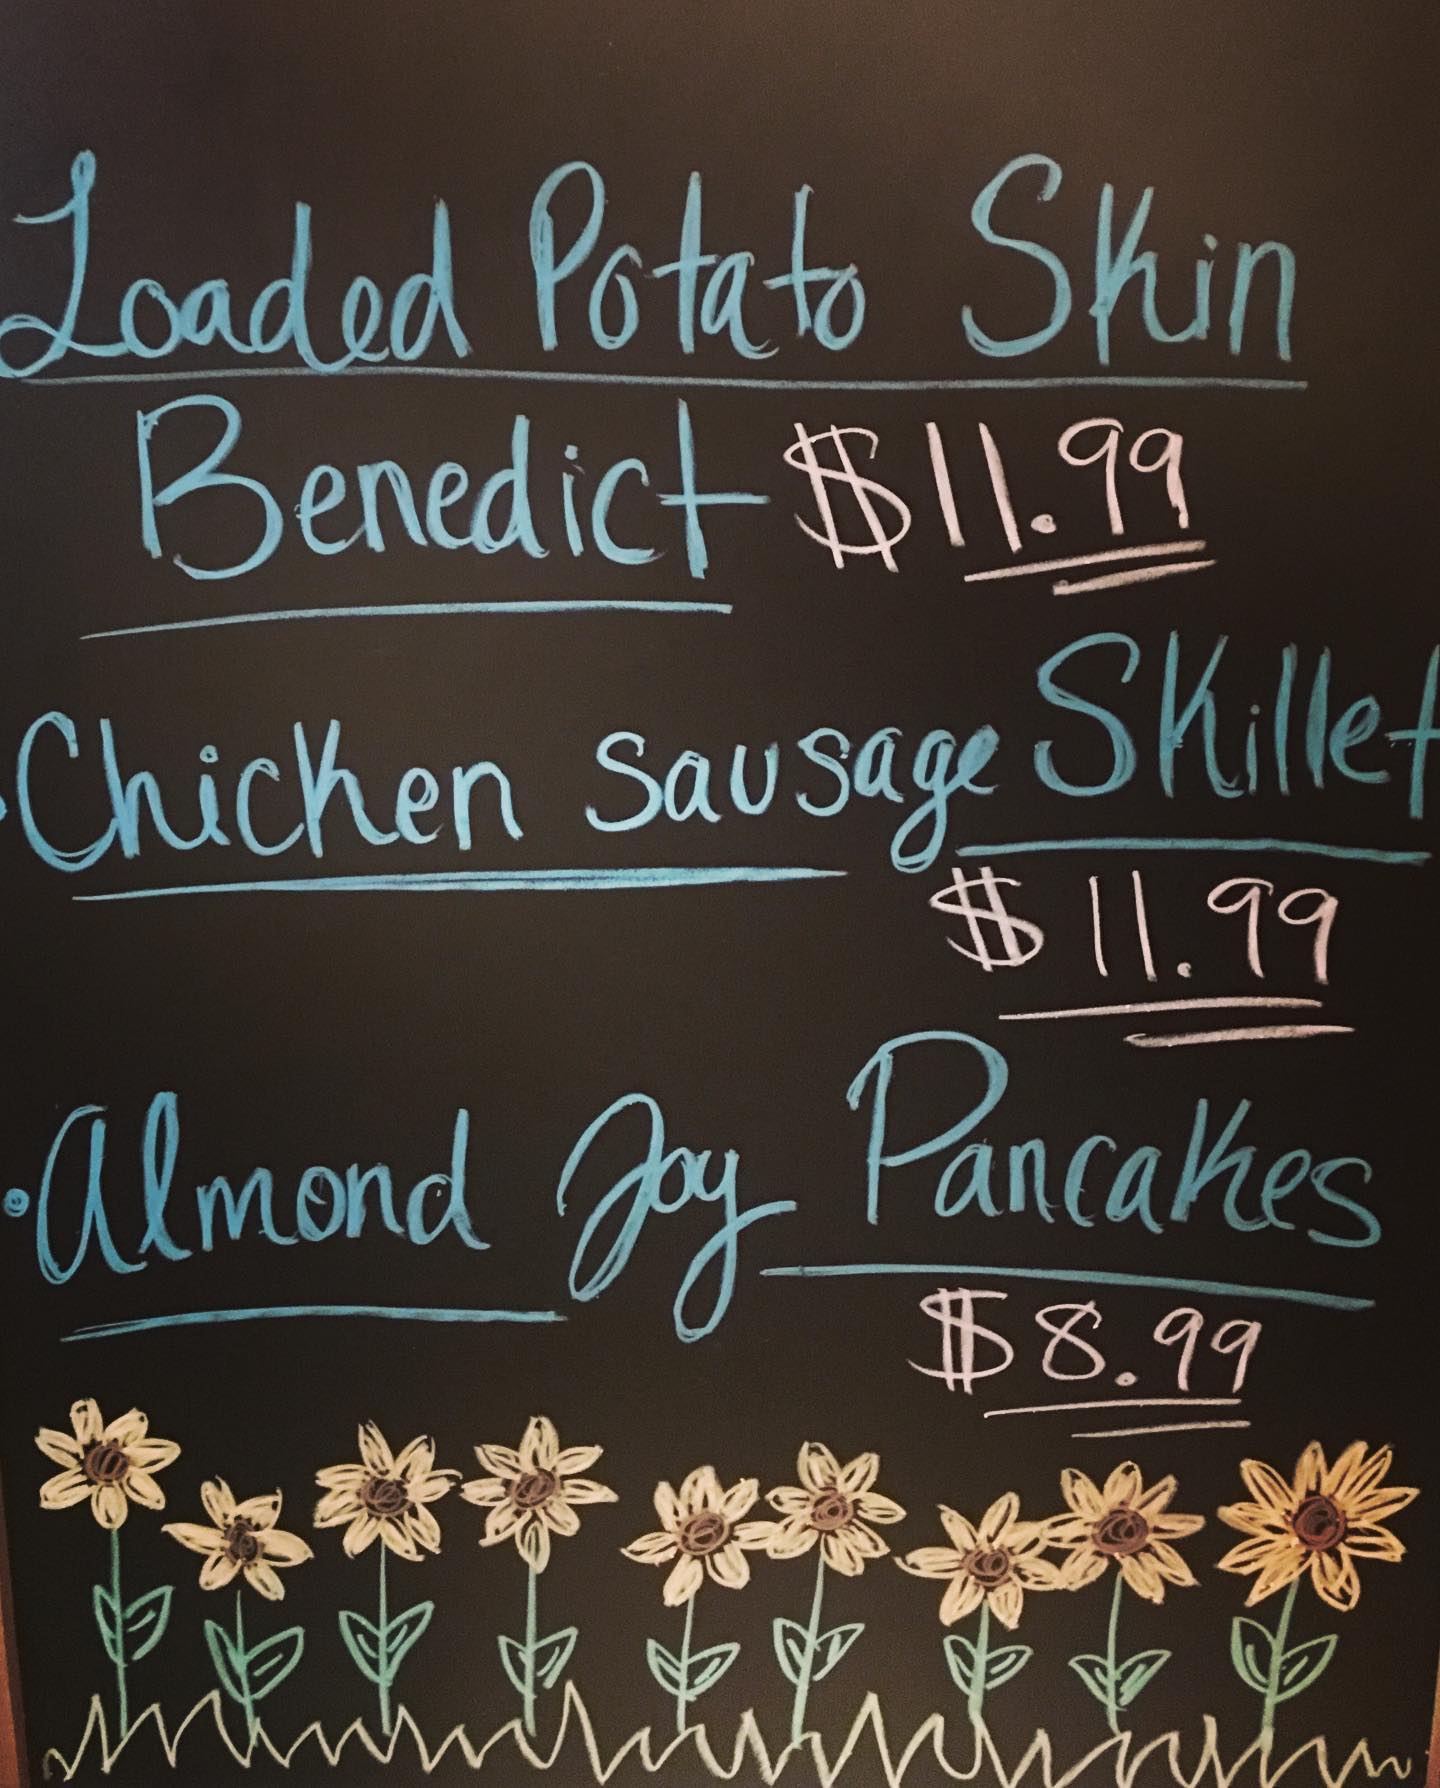 Loaded Potato Skin
Benedict $11.99
·Chicken Sausage Skillet
$11.99
·Almond Joy Pancakes
$8.99